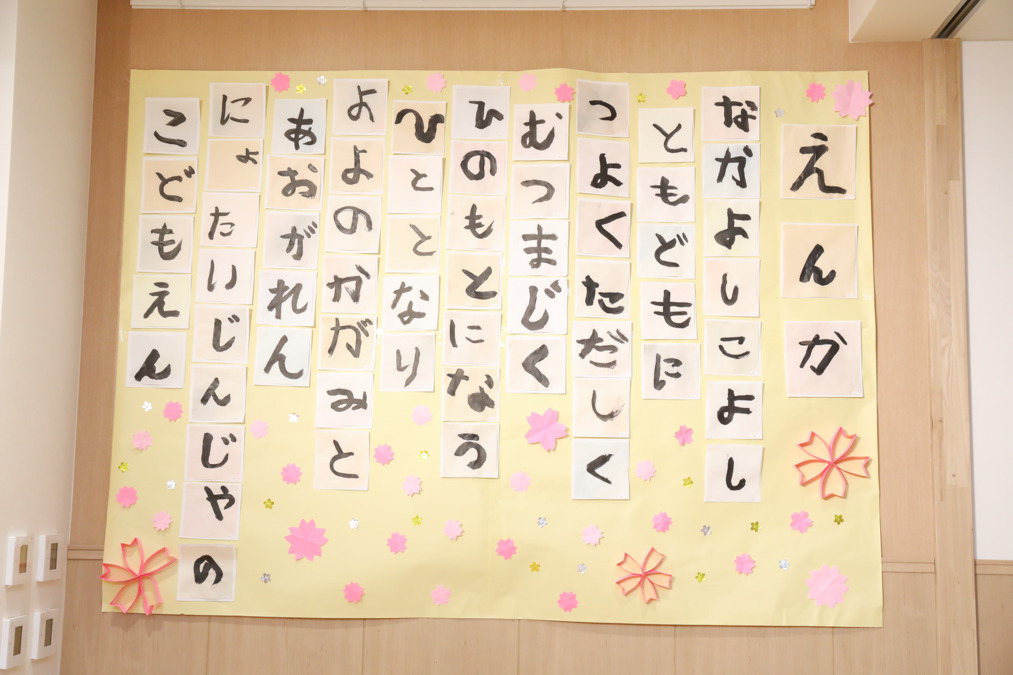 えんか
なかよしこよし
ともどもに
つよくただしく
むつまじく
ひのもとになう
ひととなり
よよのかがみと
あおがれん
にょたいじんじゃの
こどもえん